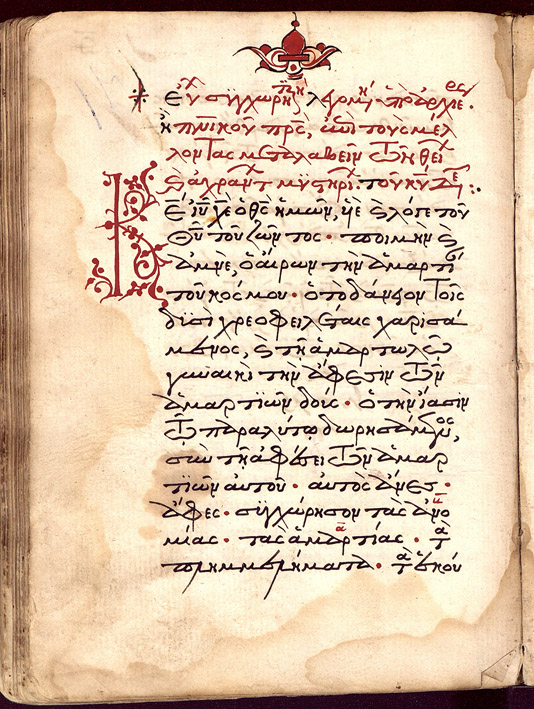 Εὐχ συγχωρητικὴ λεγομένη π ἀρχιερέως
ἢ πνικοῦ πρς, εἰς τοὺς μέλ
λοντας μεταλαβεῖν τῶν θεί
κ ἀχράντ μυστηρί. τοῦ κυ δε
Κε ἰυ χε ὁ θς ἡμῶν, ὑὲ κ λόγε τοῦ
θυ τοῦ ζῶντος· ποιμὴν κ
ἀμνέ, ὁ αἴρων τὴν ἁμαρτί
τοῦ κόσμου· ὁ τὸ δάνειον τοῖς
δυσὶ χρεοφειλέταις χαρισά
μενος, κ τῇ ἁμαρτωλῶ
γυναικὶ τὴν ἄφεσιν τῶν
ἁμαρτιῶν δούς· ὁ τὴν ἴασιν
τῶ παραλύτω δωρησάμενος,
σὺν τῇ ἀφέσει τῶν ἁμαρ
τιῶν αὐτοῦ· αὐτὸς ἄνες·
ἄφες· συγχώρησον τὰς ἀνο
μίας· τὰς ἁμαρτίας· τὰ
πλημμελήματα· τὰ ἑκού